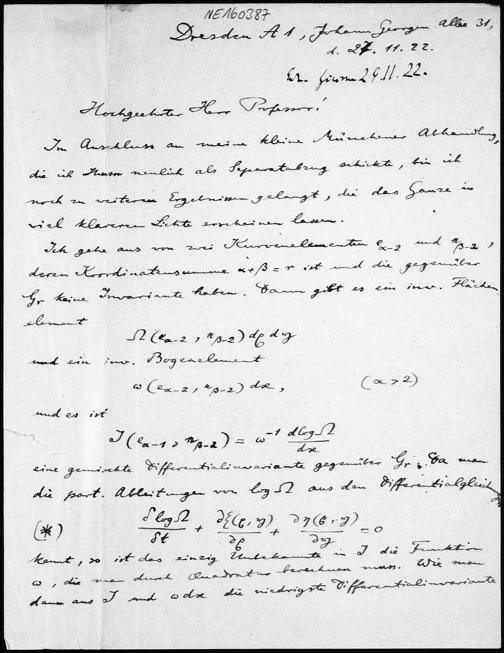 NE160387
Dresden A 1, Johann Georgen Allee 31,
d. 27. 11. 22.
29.11.22.
Hochgeehrter Herr Professor!
Im Anschluss an meine kleine Münchener Abhandlung,
die ich Ihnen neulich als Separatabzug schickte, bin ich
noch zu weiteren Ergebnissen gelangt, die das Ganze in
viel klareren Lichte erscheinen lassen.
Ich gehe aus von zwei Kurvenelementen e_{α-2} und n_{β-2},
deren Koordinatensumme α+β=r ist und die gegenüber
G_r keine Invariante haben. Dann gibt es ein inv. Flächen
element
Ω(e_{α-2}, n_{β-2}) dξ dη
und ein inv. Bogenelement
ω(e_{α-2}, n_{β-2}) dx, (α>2)
und es ist
J(e_{α-1}, n_{β-2}) = ω^{-1} dlogΩ/dx
eine gemischte Differentialinvariante gegenüber G_r. Da man
die part. Ableitungen von log Ω aus den Differentialgleichungen
(*) δlogΩ/δt + ∂ξ(ξ,η)/∂ξ + ∂η(ξ,η)/∂η = 0
kennt, so ist das einzig Unbekannte in J die Funktion
ω, die man durch Quadratur berechnen muss. Wie man
dann aus J und ω dx die niedrigste Differentialinvariante